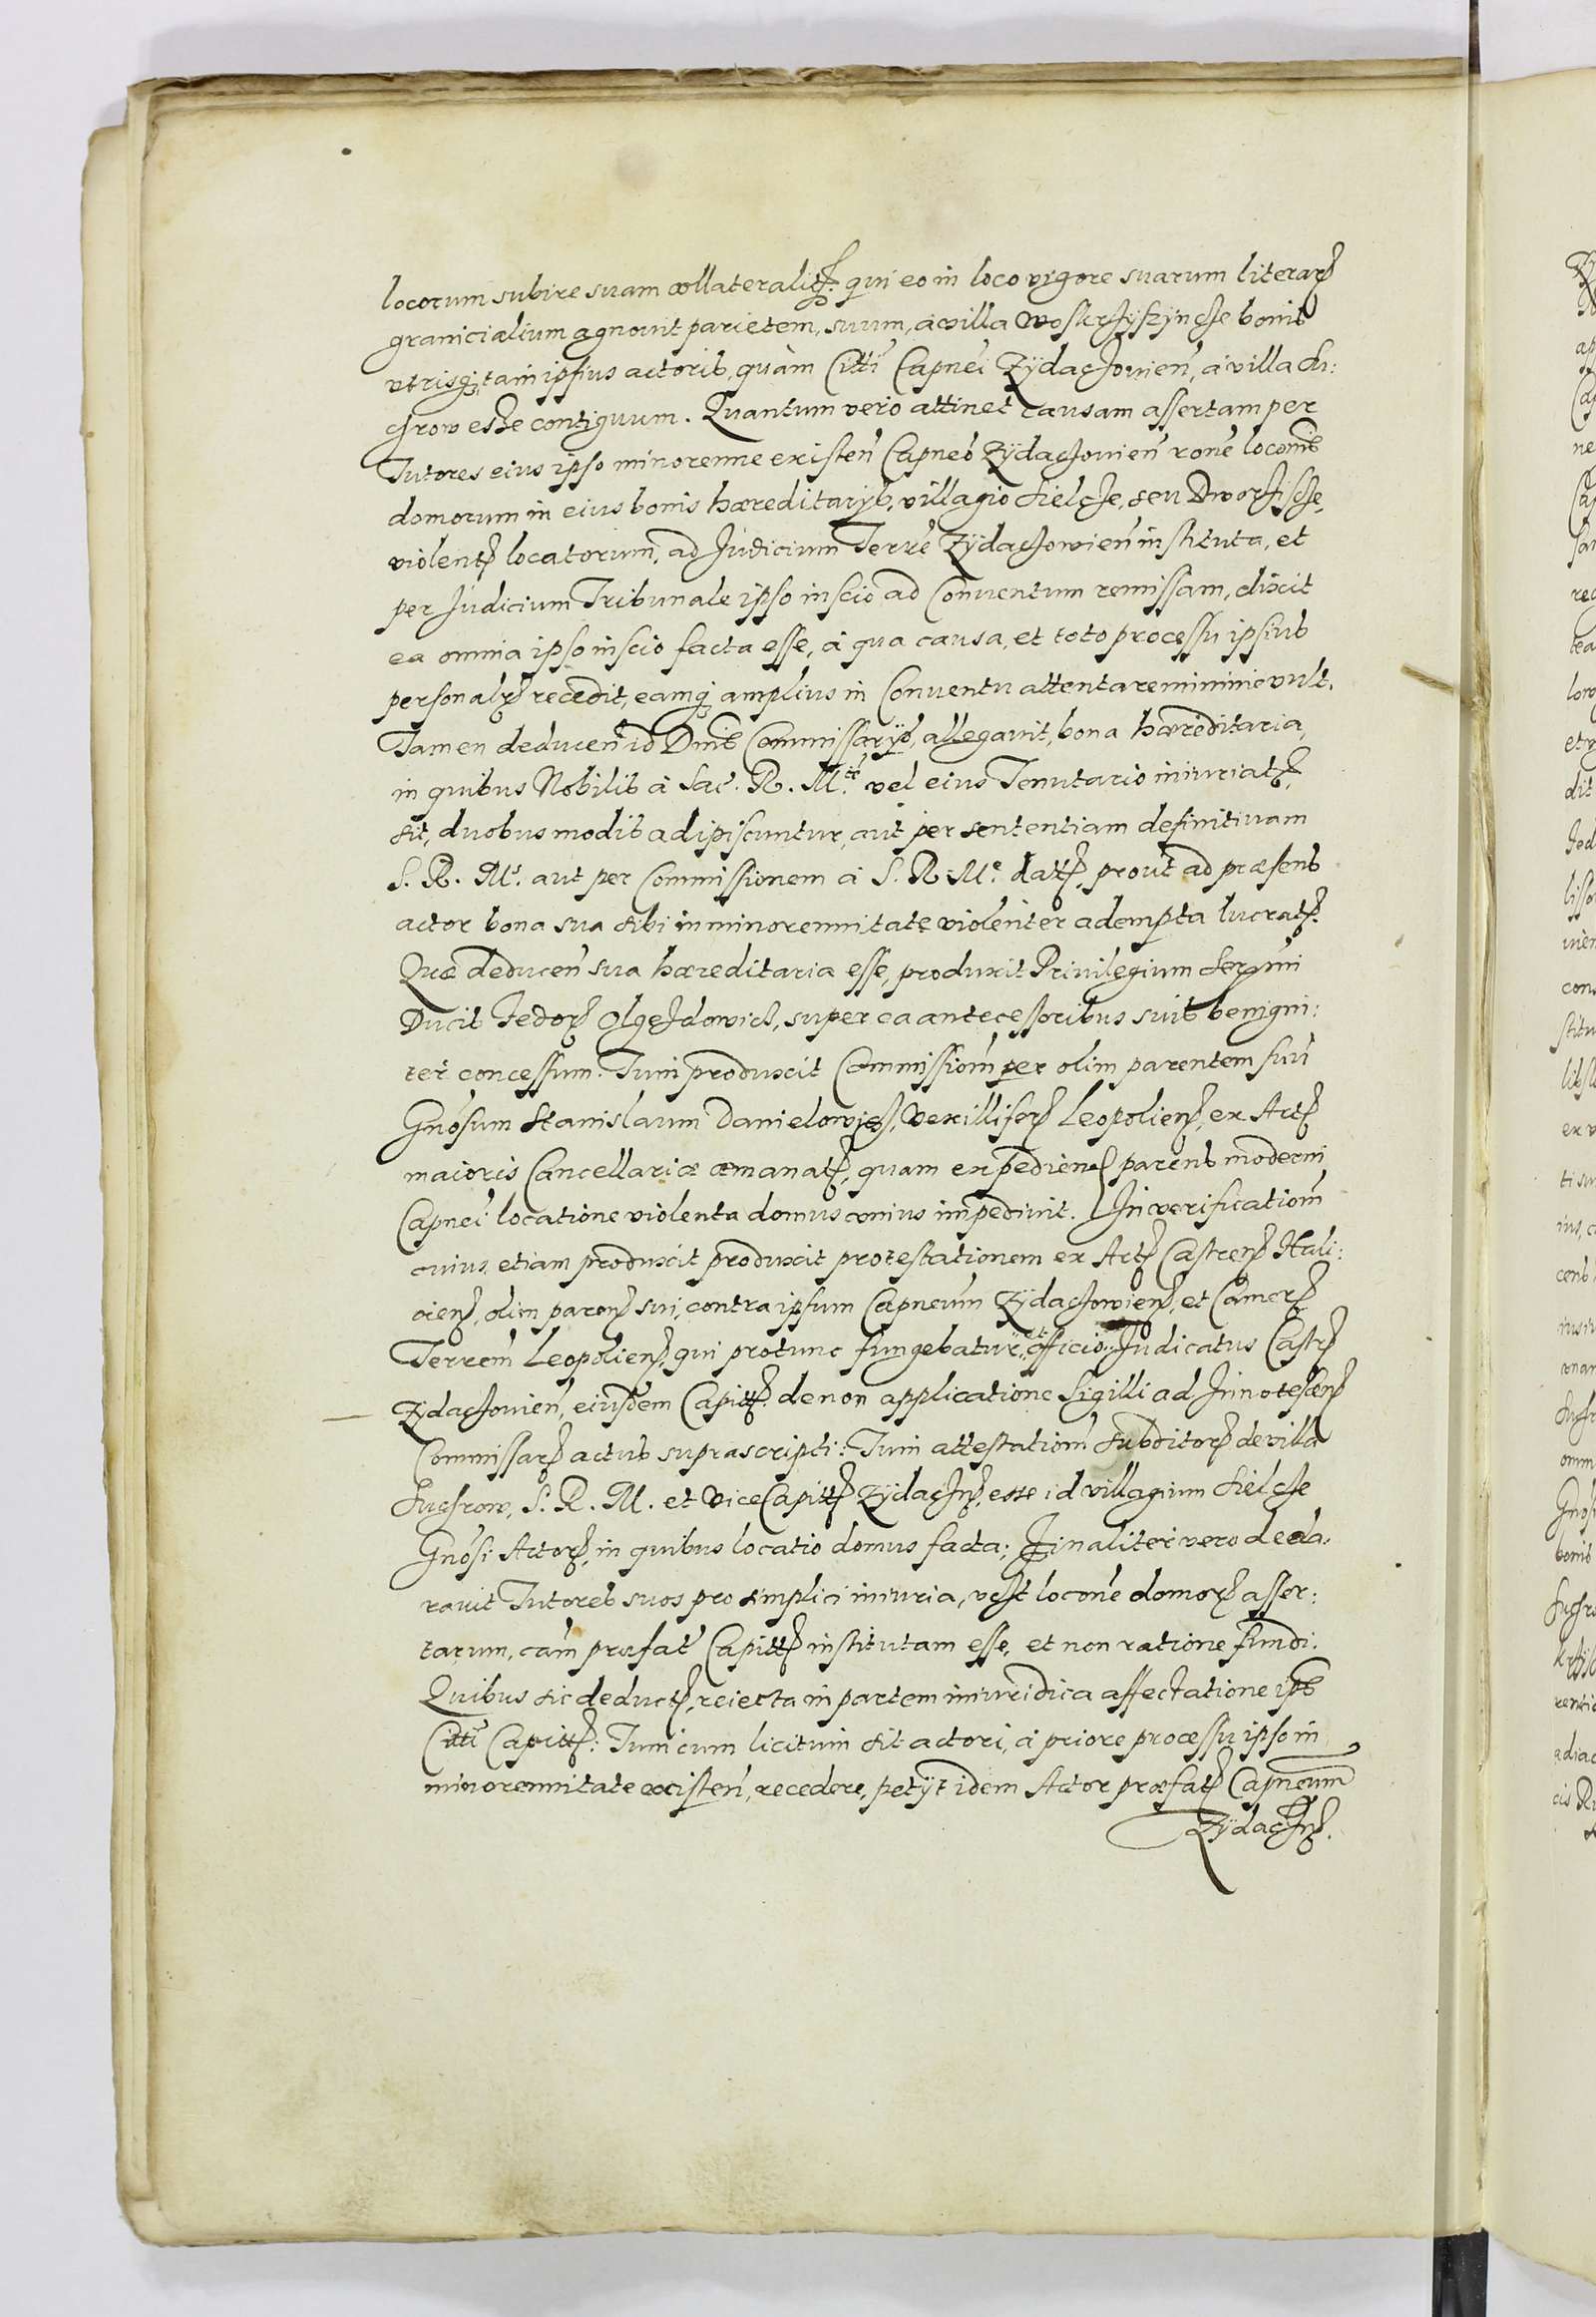 locorum subire suam collateralitẽ: qui eo in loco vigore suarum literarȩ
granicialium agnouit parietem, suum, à villa Woskrzyszyncze bonis
vtrisq̨ tam ipsius actoris, quàm Citti Capnei Zÿdaczouien̄, à villa Su:
chrow esse contiguum. Quantum vero attinet causam assertam per
Tutores eius ipso minorenne existen̄ Capneo Zÿdaczouien̄ rone loconis
domorum in eius bonis hæreditarÿs, villagio Sielcze, seu Dworziscze,
violentȩ locatorum, ad Judicium Terrẽ Zÿdaczowien̄ instituta, et
per Judicium Tribunale ipso inscio ad Conuentum remissam, dixit
ea omnia ipso inscio facta esse, à qua causa, et toto processu ipsius
personalȩ recedit, eamq̨ amplius in Conuentu attentare minime vult.
Tamen deducen̄ id Dnis Commissarÿs, allegauit, bona hæreditaria,
in quibus Nobilis à Sac. R. M.te vel eius Tenutario iniuriatȩ
sit, duobus modis adipiscuntur, aut per sententiam definitiuam
S. R. M.s aut per Commissionem à S. R. M.e datȩ, prout ad præsens
actor bona sua sibi in minorennitate violenter adempta lucratȩ.
Quæ deducen̄ sua hæreditaria esse, produxit Priuilegium Sermi
Ducis Fedorȩ Olgeldowich, super ea antecessoribus suis benigni:
ter concessum. Tum produxit Commissionm per olim parentem suũ
Gnosum Stanislaum Danielowicz, Vexilliferȩ Leopolienȩ, ex Actȩ
maioris Cancellariæ æmanatȩ, quam expedienȩ parens moderni
Capnei locatione violenta domus vnius impediuit. In verificationm
cuius etiam produxit produxit protestationem ex Actȩ Castrenȩ Hali:
cienȩ, olim parenȩ sui, contra ipsum Capneum Zÿdaczowienȩ, et Camerȩ
Terrem̄ Leopolienȩ, qui protunc fungebatur, officio Judicatus Castrȩ
Zydaczouien̄, eiusdem Capittȩ. de non applicatione Sigilli ad Innotescenȩ
Commissarȩ actus suprascripti: Tum attestationm subditorȩ de villa
Suchrow, S. R. M. et ViceCapittȩ Zÿdaczȩ, esse id villagium Sielcze
Gnosi Actorȩ, in quibus locatio domus facta; Finaliter vero decla,
rauit Tutores suos pro simplici iniuria, vczt locone domorȩ asser:
tarum, cam̄ præfat Capittȩ institutam esse, et non ratione fundi.
Quibus sic deductȩ, reiecta in partem iniuridica affectatione ips
Citti Capittȩ: Tum cum licitum sit actori, à priore processu ipso in
minorennitate existen̄, recedere, petÿt idem Actor præfatȩ Capneum
Zÿdaczȩ.